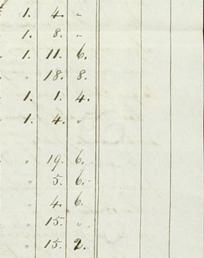 1. 4. -
1. 8. -
1. 11. 6.
" 18. 8.
1. 1. 4.
1. 4. "
" 19. 6.
" 5. 6.
" 4. 6.
" 15. "
" 15. 2.